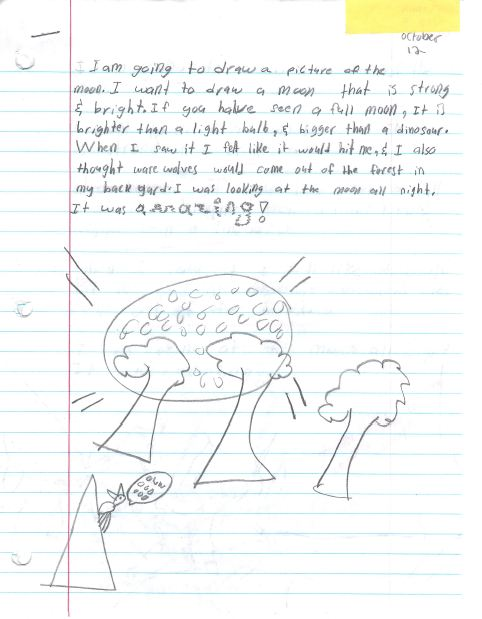 october
12
I I am going to draw a picture of the
moon. I want to draw a moon that is strong
& bright. If you halve seen a full moon, It is
brighter than a light bulb, & bigger than a dinosaur.
When I saw it I felt like it would hit me, & I also
thought ware wolves would come out of the forest in
my back yard. I was looking at the moon all night.
It was amazing!